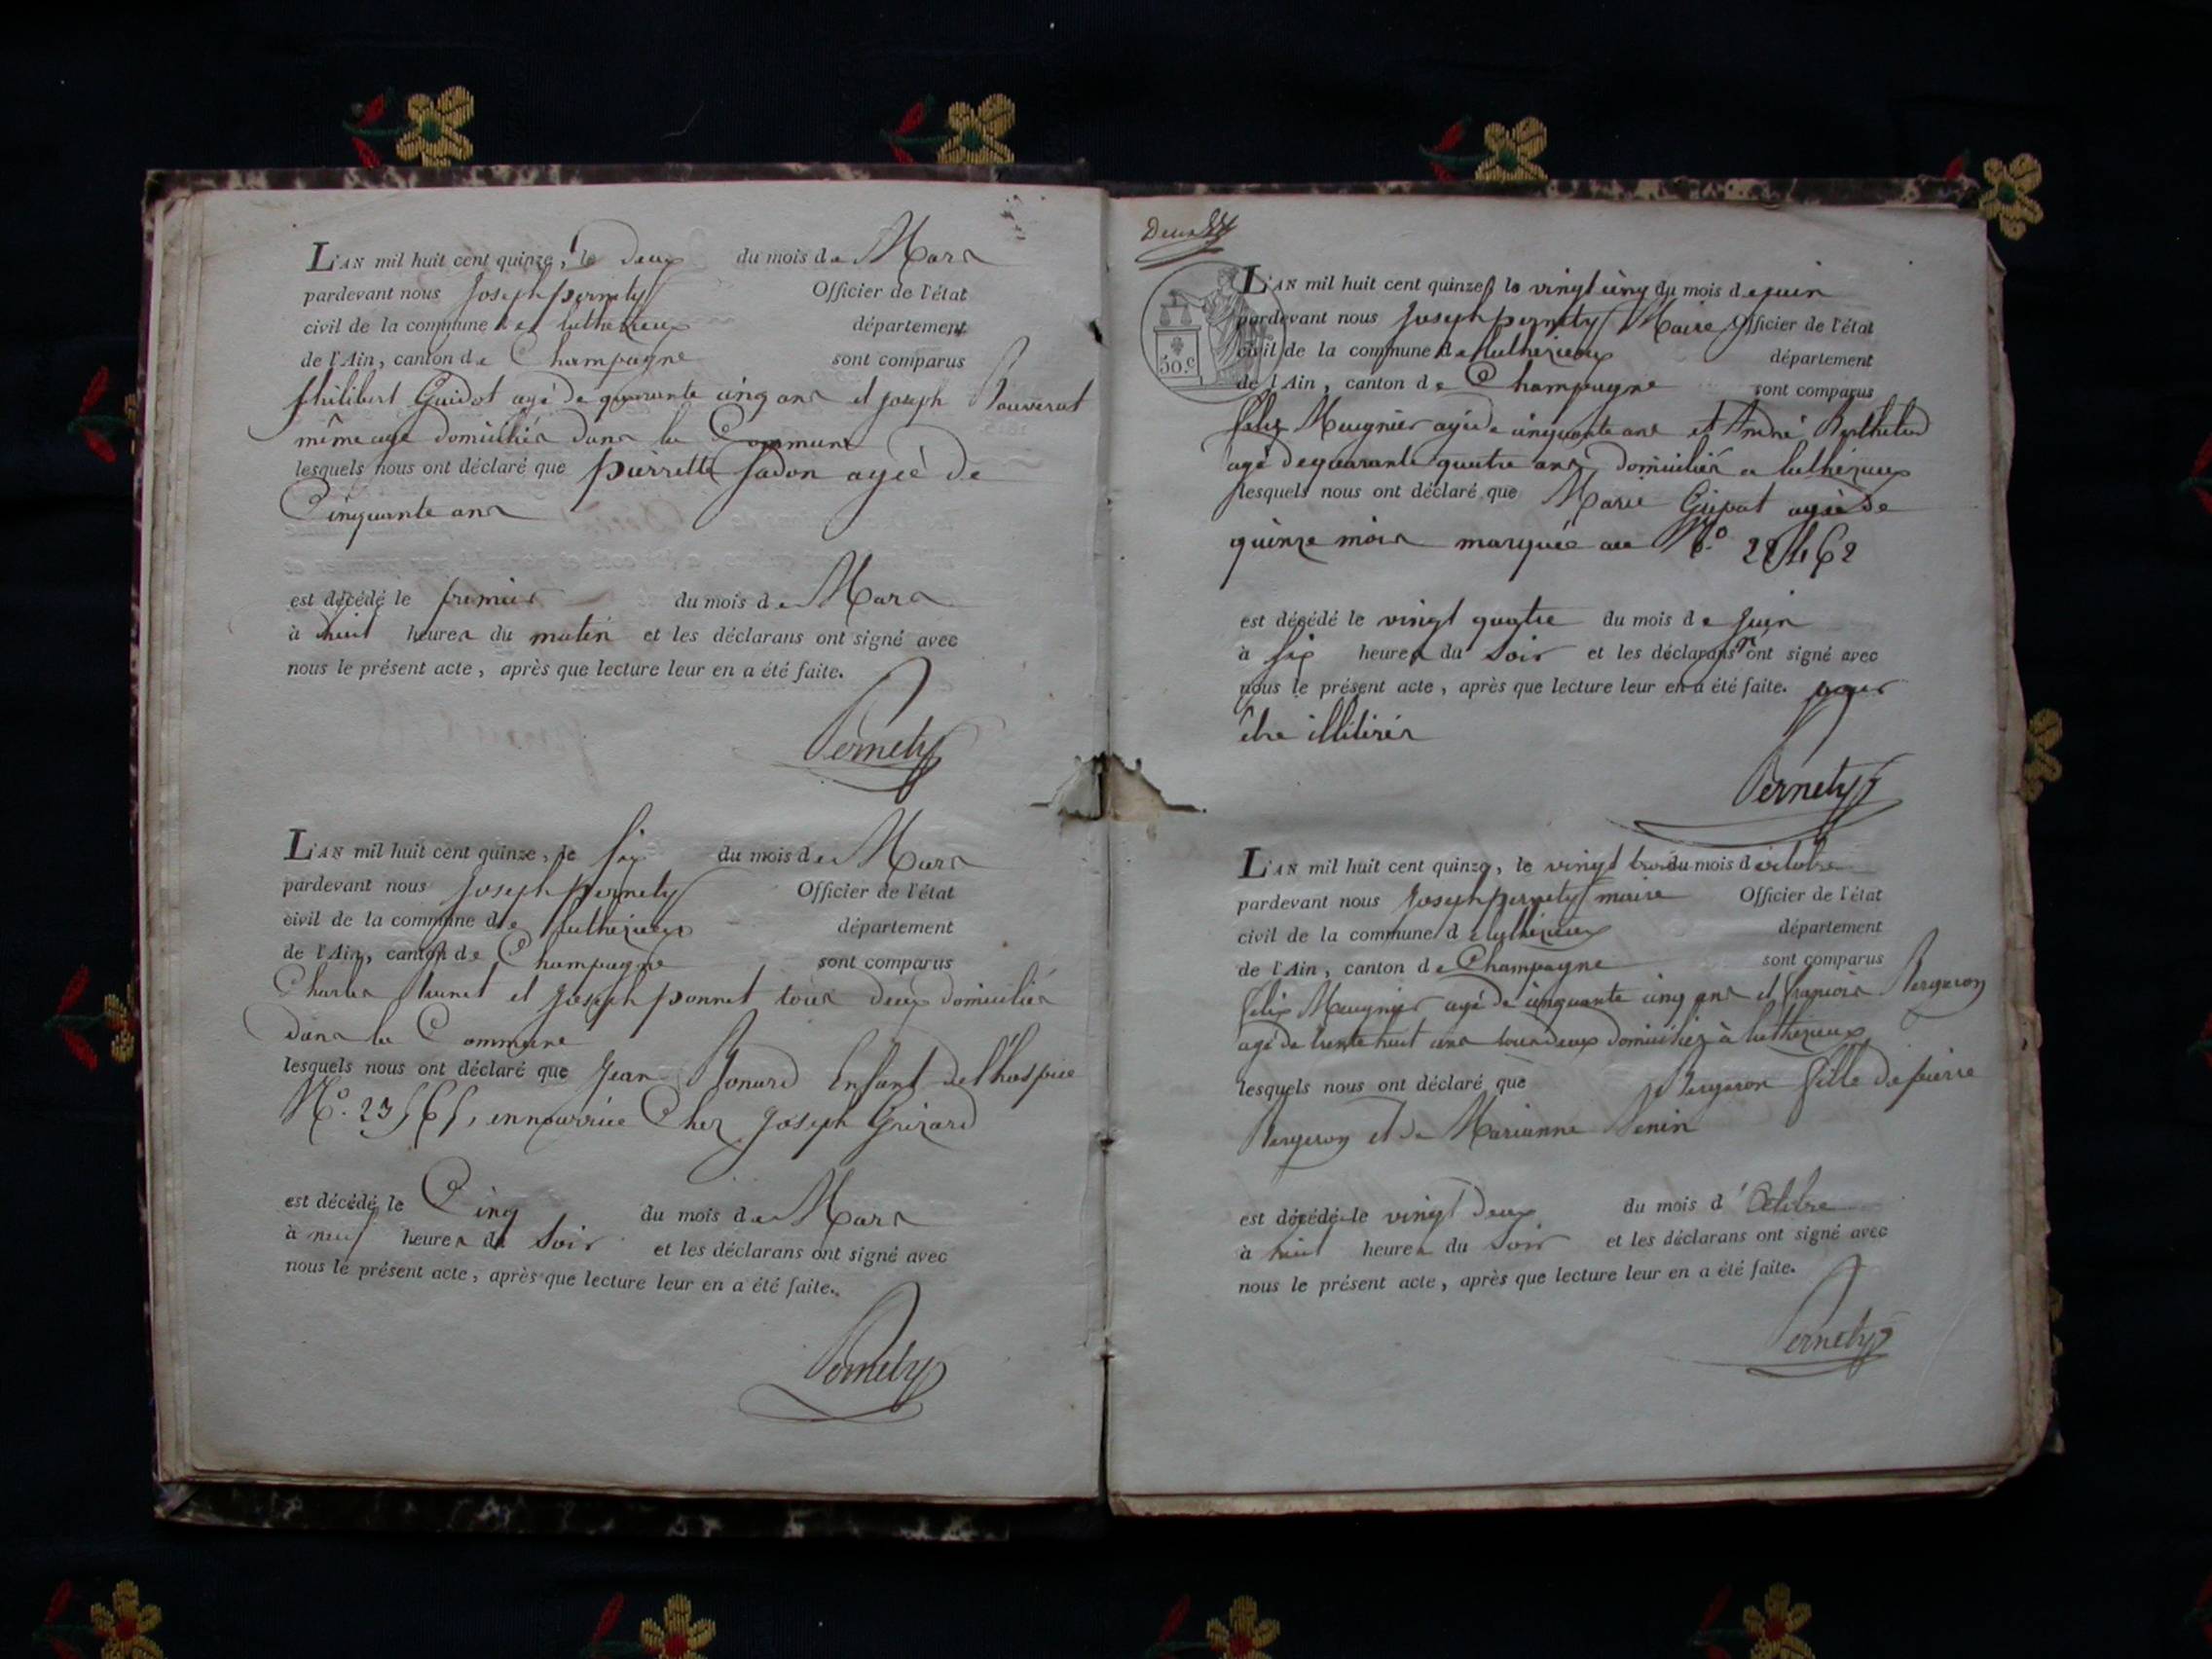 L'AN mil huit cent quinze, le deux du mois de Mars
pardevant nous Joseph pernety Officier de l'état
civil de la commune de luthezieux département
de l'Ain, canton de Champagne sont comparus
philibert Guidot agé de quarante cinq ans et joseph
même age domiciliés dans la Commune
lesquels nous ont déclaré que pierrette jadon agée de
Cinquante ans
est décédé le premier du mois de Mars
à huit heures du matin et les déclarans ont signé avec
nous le présent acte, après que lecture leur en a été faite.
Pernety
L'AN mil huit cent quinze, le six du mois de Mars
pardevant nous Joseph pernety Officier de l'état
civil de la commune de luthezieux département
de l'Ain, canton de Champagne sont comparus
Charles et Joseph ponnet tous deux domiciliés
dans la Commune
lesquels nous ont déclaré que Jean Bonard Enfant de l'hospice
N.º en nourrice Chez Joseph Grizard
est décédé le Cinq du mois de Mars
à neuf heures du soir et les déclarans ont signé avec
nous le présent acte, après que lecture leur en a été faite.
Pernety
Deux
50.C
L'AN mil huit cent quinze, le vingt cinq du mois de juin
pardevant nous Joseph pernety Maire Officier de l'état
civil de la commune de luthezieux département
de l'Ain, canton de Champagne sont comparus
felix Meugnier agé de cinquante ans et André Berthelod
agé de quarante quatre ans, domiciliés a luthezieux
lesquels nous ont déclaré que Marie agée de
quinze mois marquée au N.º
est décédé le vingt quatre du mois de juin
à six heures du soir et les déclarans n'ont signé avec
nous le présent acte, après que lecture leur en a été faite. pour
être illitirés
Pernety
L'AN mil huit cent quinze, le vingt trois du mois d'octobre
pardevant nous Joseph pernety maire Officier de l'état
civil de la commune de luthezieux département
de l'Ain, canton de Champagne sont comparus
felix Meugnier agé de cinquante cinq ans et françois Bergeron
agé de trente huit ans tous deux domiciliez à luthezieux
lesquels nous ont déclaré que Bergeron fille de pierre
Bergeron et de Marianne
est décédé le vingt deux du mois d'Octobre
à huit heures du soir et les déclarans ont signé avec
nous le présent acte, après que lecture leur en a été faite.
Pernety